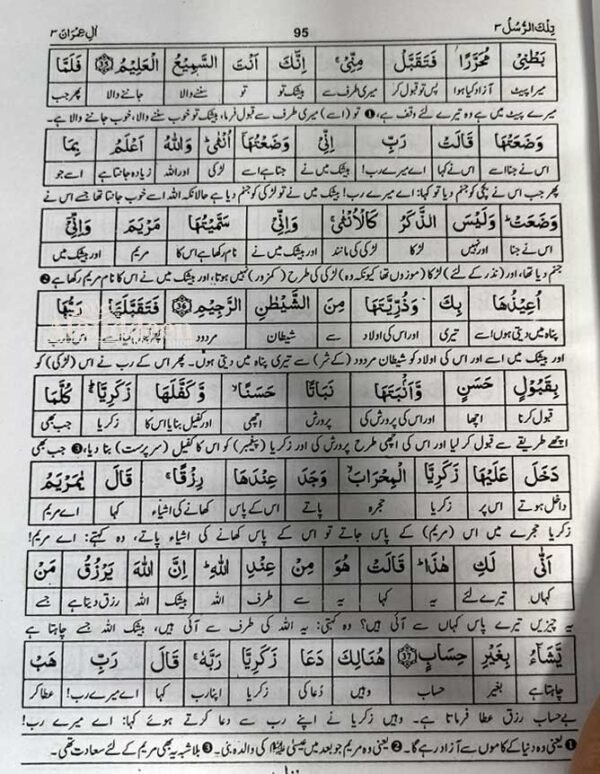 تِلْكَ الرُّسُلُ ٣ 95 اٰلِ عِمْرَان ٣
بَطْنِىْ مُحَرَّرًا فَتَقَبَّلْ مِنِّىْ ۚ اِنَّكَ اَنْتَ السَّمِيْعُ الْعَلِيْمُ ﴿35﴾ فَلَمَّا
میرا پیٹ آزاد کیا ہوا پس تو قبول کر میری طرف سے بیشک تو تو سننے والا جاننے والا پھر جب
میرے پیٹ میں ہے وہ تیرے لئے وقف ہے، ❶ تو (اسے) میری طرف سے قبول فرما، بیشک تو خوب سننے والا، خوب جاننے والا ہے۔
وَضَعَتْهَا قَالَتْ رَبِّ اِنِّىْ وَضَعْتُهَاۤ اُنْثٰى ؕ وَاللّٰهُ اَعْلَمُ بِمَا
اس نے جنا اسے اس نے کہا اے میرے رب! بیشک میں نے جنا ہے اسے لڑکی اور اللہ زیادہ جانتا ہے اسے جو
پھر جب اس نے بچی کو جنم دیا تو کہا: اے میرے رب! بیشک میں نے تو لڑکی کو جنم دیا ہے حالانکہ اللہ اسے خوب جانتا تھا جسے اس نے
وَضَعَتْ ؕ وَلَيْسَ الذَّكَرُ كَالْاُنْثٰى ۚ وَاِنِّىْ سَمَّيْتُهَا مَرْيَمَ وَاِنِّىْۤ
اس نے جنا اور نہیں لڑکا لڑکی کی مانند اور بیشک میں نے نام رکھا ہے اس کا مریم اور بیشک میں
جنم دیا تھا، اور (نذر کے لئے) لڑکا (موزوں تھا کیونکہ وہ) لڑکی کی طرح (کمزور) نہیں ہوتا، اور بیشک میں نے اس کا نام مریم رکھا ہے ❷
اُعِيْذُهَا بِكَ وَذُرِّيَّتَهَا مِنَ الشَّيْطٰنِ الرَّجِيْمِ ﴿36﴾ فَتَقَبَّلَهَا رَبُّهَا
پناہ میں دیتی ہوں اسے تیری اور اس کی اولاد سے شیطان مردود اس کا رب
اور بیشک میں اسے اور اس کی اولاد کو شیطان مردود (کے شر) سے تیری پناہ میں دیتی ہوں۔ پھر اس کے رب نے اس (لڑکی) کو
بِقَبُوْلٍ حَسَنٍ وَّاَنْۢبَتَهَا نَبَاتًا حَسَنًا ۙ وَّكَفَّلَهَا زَكَرِيَّا ؕ كُلَّمَا
قبول کرنا اچھا اور اس کی پرورش کی پرورش اچھی اور کفیل بنایا اس کا زکریا جب بھی
اچھے طریقے سے قبول کر لیا اور اس کی اچھی طرح پرورش کی اور زکریا (پیغمبر) کو اس کا کفیل (سرپرست) بنا دیا، ❸ جب بھی
دَخَلَ عَلَيْهَا زَكَرِيَّا الْمِحْرَابَ ۙ وَجَدَ عِنْدَهَا رِزْقًا ۚ قَالَ يٰمَرْيَمُ
داخل ہوتے اس پر زکریا حجرہ پاتے اس کے پاس کھانے کی اشیاء کہا اے مریم
زکریا حجرے میں اس (مریم) کے پاس جاتے تو اس کے پاس کھانے کی اشیاء پاتے، وہ کہتے: اے مریم!
اَنّٰى لَكِ هٰذَا ؕ قَالَتْ هُوَ مِنْ عِنْدِ اللّٰهِ ؕ اِنَّ اللّٰهَ يَرْزُقُ مَنْ
کہاں تیرے لئے یہ کہا یہ سے طرف اللہ بیشک اللہ رزق دیتا ہے جسے
یہ چیزیں تیرے پاس کہاں سے آئی ہیں؟ وہ کہتی: یہ اللہ کی طرف سے آئی ہیں، بیشک اللہ جسے چاہتا ہے
يَّشَآءُ بِغَيْرِ حِسَابٍ ﴿37﴾ هُنَالِكَ دَعَا زَكَرِيَّا رَبَّهٗ ۚ قَالَ رَبِّ هَبْ
چاہتا ہے بغیر حساب وہیں دُعا کی زکریا اپنا رب کہا اے میرے رب! عطا کر
بے حساب رزق عطا فرماتا ہے۔ وہیں زکریا نے اپنے رب سے دعا کرتے ہوئے کہا: اے میرے رب!
❶ یعنی وہ دنیا کے کاموں سے آزاد رہے گا۔ ❷ یعنی وہ مریم جو بعد میں عیسیٰ علیہ السلام کی والدہ بنی۔ ❸ بلاشبہ یہ بھی مریم کے لئے سعادت تھی۔